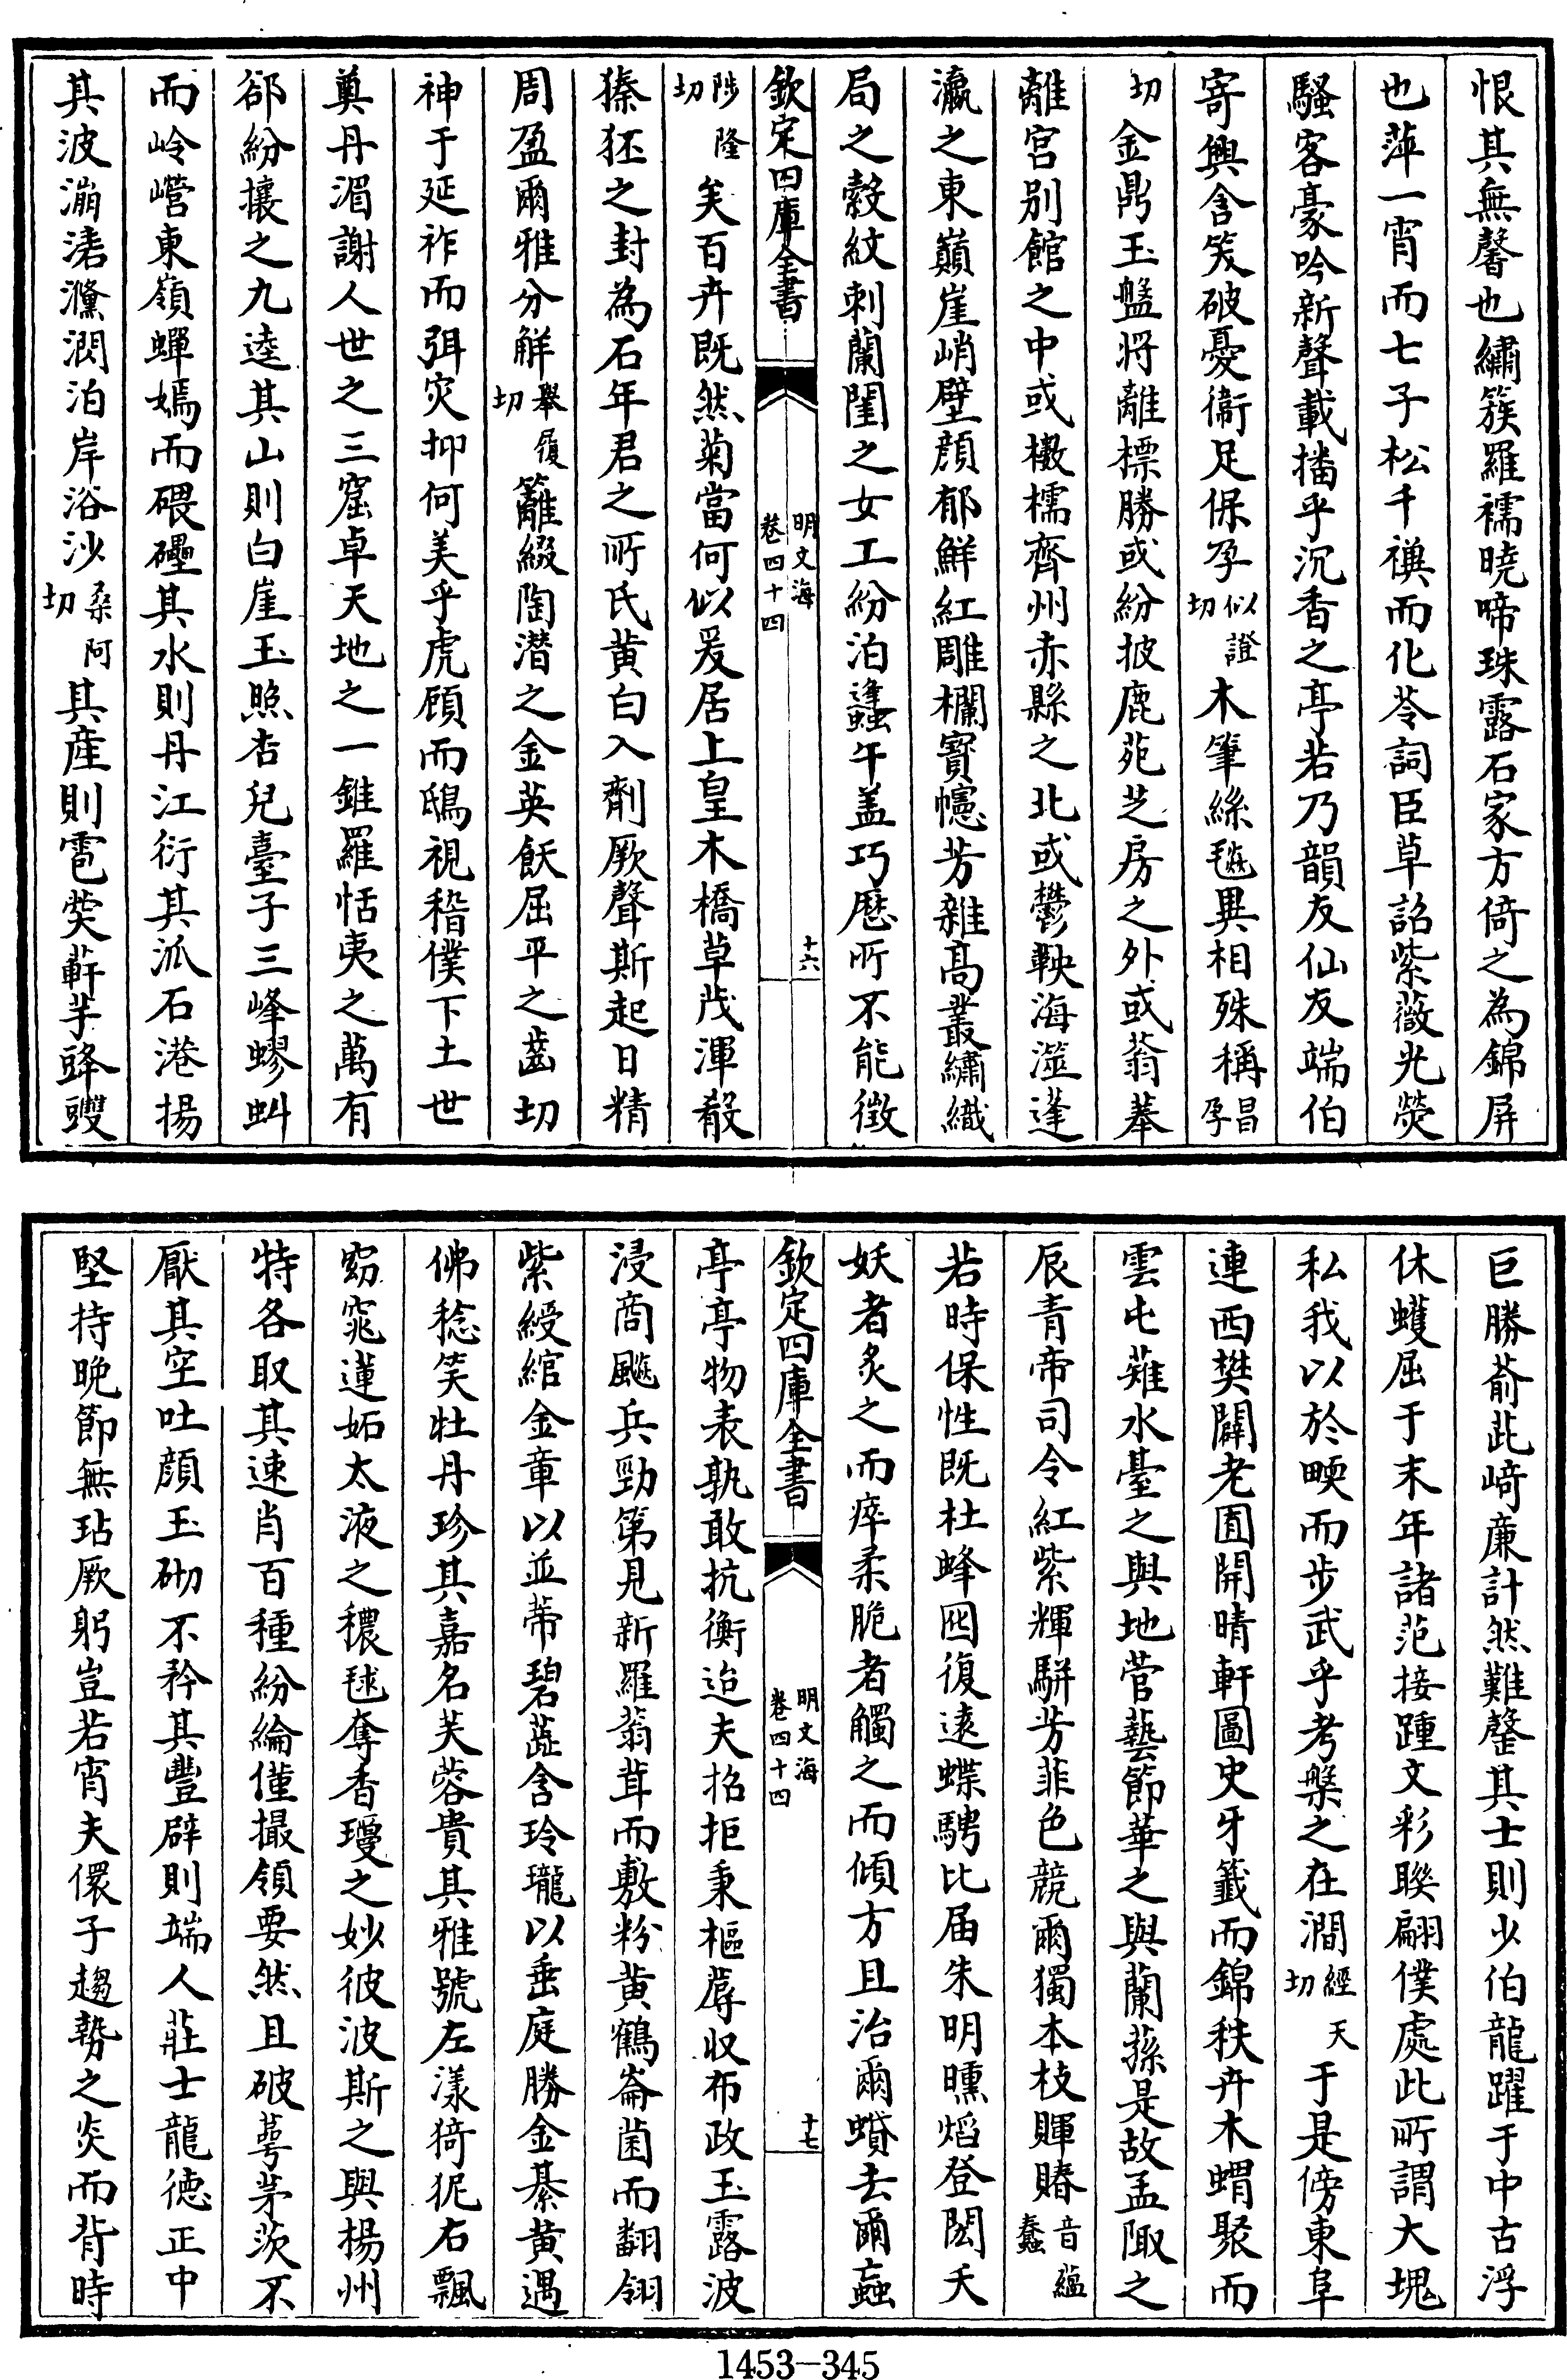 恨其無馨也繡簇羅襦曉啼珠露石家方倚之為錦屏
也萍一宵而七子松千禩而化苓詞臣草詔紫薇光熒
騷客豪吟新聲載播乎沉香之亭若乃韻友仙友端伯
寄興含笑破憂衞足保孕似證切木筆絲毬異相殊稱昌孕
切金鼎玉盤將離標勝或紛披鹿苑芝房之外或蓊菶
離宮别館之中或檄檽齊州赤縣之北或鬱鞅海澨蓬
瀛之東巔崖峭壁顔郁鮮紅雕欄寳幰芳雜高叢繡織
局之縠紋刺蘭閨之女工紛泊蠭午盖巧厯所不能徵
欽定四庫全書
明文海
卷四十四
十六
陟隆切矣百卉既然菊當何似爰居上皇木橋草茂渾殽
獉狉之封為石年君之所氏黄白入劑厥聲斯起日精
周盈爾雅分觧舉履切籬綴陶潜之金英飫屈平之齒切
神于延祚而弭灾抑何美乎虎顧而鴟視稽僕下土世
奠丹湄謝人世之三窟卓天地之一錐羅恬夷之萬有
郤紛攘之九逵其山則白崖玉照杏兒臺子三峰蟉虯
而岭巆東嶺蟬嫣而碨礨其水則丹江衍其泒石港揚
其波漰湱灙㵎泊岸浴沙桑阿切其産則雹葖蓒芋䜶䝄
巨勝萮茈﨑亷計然難罄其士則少伯龍躍于中古浮
休蠖屈于末年諸范接踵文彩聮翩僕處此所謂大塊
私我以於畹而步武乎考槃之在澗經天切于是傍東阜
連西樊闢老圃開晴軒圖史牙籖而錦秩卉木蝟聚而
雲屯薙水臺之與地菅藝節華之與蘭蓀是故孟陬之
辰青帝司令紅紫輝駢芳菲色競爾獨本枝賱賰音蘊蠢
若時保性既杜蜂囮復遠蝶騁比届朱明曛熖登閎夭
妖者炙之而瘁柔脆者觸之而傾方且治爾蟦去爾蝱
欽定四庫全書
明文海
卷四十四
十七
亭亭物表孰敢抗衡迨夫招拒秉樞蓐收布政玉露波
浸商飈兵勁第見新羅蓊茸而敷粉黄鶴崙菌而翻翎
紫綬綰金章以並蒂碧蕋含玲瓏以垂庭勝金綦黄遇
佛稔笑牡丹珍其嘉名芙蓉貴其雅號左漾猗狔右飄
窈窕蓮妬太液之穠毬奪香瓊之妙彼波斯之與揚州
特各取其逺肖百種紛綸僅撮領要然且破萼茅茨不
厭其空吐顔玉砌不矜其豐辟則端人莊士龍德正中
堅持晚節無玷厥躬豈若宵夫儇子趨勢之炎而背時
1453-345